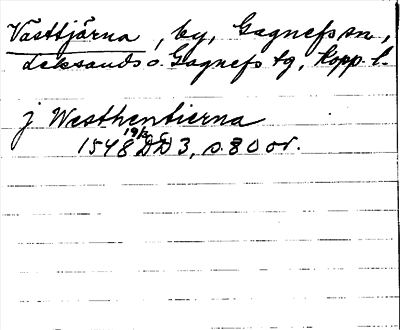 Västtjärna, by, Gagnefs sn,
Leksands o. Gagnefs tg, Kopp. l.
j Westhentierna
1548 19/2 DD 3, s. 80 or.